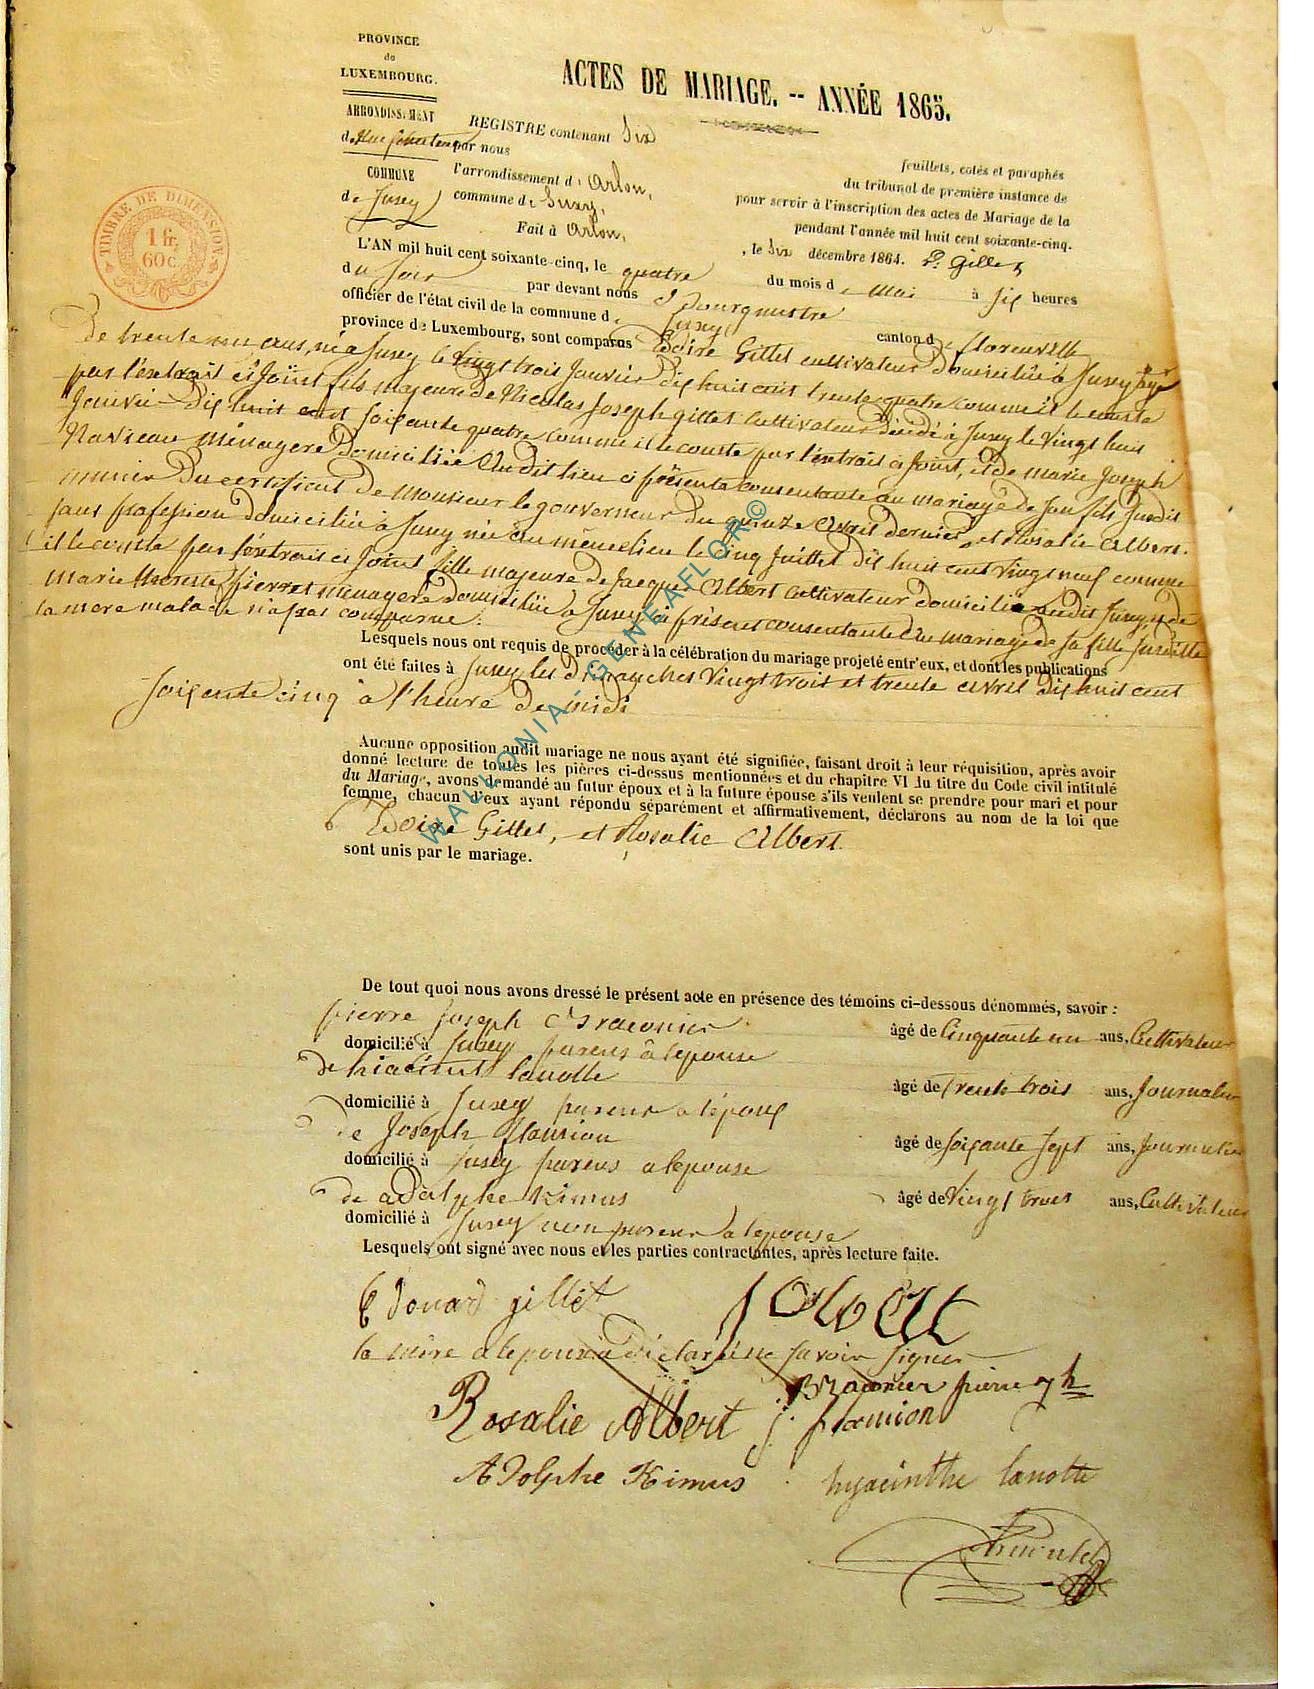 PROVINCE
de
LUXEMBOURG.
ARRONDISSEMENT
de Neufchateau
COMMUNE
de Susey
ACTES DE MARIAGE. -- ANNÉE 1865.
REGISTRE contenant Six feuillets, cotés et paraphés
par nous du tribunal de première instance de
l'arrondissement d' Arlon, pour servir à l'inscription des actes de Mariage de la
commune de Suxy, pendant l'année mil huit cent soixante-cinq.
Fait à Arlon, , le Six décembre 1864. Gilles
TIMBRE DE DIMENSION
1 fr.
60 c.
L'AN mil huit cent soixante-cinq, le quatre du mois de Mai à six heures
du Soir par devant nous Bourgmestre
officier de l'état civil de la commune de Susey canton de florenville
province de Luxembourg, sont comparus Edoire Gillet cultivateur Domicilié à Susey agé
De trente un ans, né à Susey le Vingt trois Janvier Dix huit cent trente quatre comme il le conste
par l'extrait ci Joint fils majeure de Nicolas Joseph Gillet Cultivateur Décédé à Susey le Vingt huit
Janvier Dix huit cent soixante quatre comme il le conste par l'extrait ci Joint, et de marie Joseph
Naviaux Ménagere Domiciliée Audit lieu ci présente consentante au mariage de son fils susdit
munier Du certificat De Monsieur le gouverneur Du quinze Avril dernier, et Rosalie Albert.
sans profession domiciliée à Susey née au même lieu le Cinq Juillet dix huit cent vingt neuf comme
il le conste par l'extrait ci Joint fille majeure de Jacque Albert Cultivateur domicilié audit Susey, et de
Marie therese pierret menagere Domiciliée à Susey ci présent consentante Au mariage de sa fille susditte
la mere malade n'a pas comparue.
Lesquels nous ont requis de procéder à la célébration du mariage projeté entr'eux, et dont les publications
ont été faites à Susey les dimanches Vingt trois et trente avril dix huit cent
soixente cinq à l'heure De midi
Aucune opposition audit mariage ne nous ayant été signifiée, faisant droit à leur réquisition, après avoir
donné lecture de toutes les pièces ci-dessus mentionnées et du chapitre VI du titre du Code civil intitulé
du Mariage, avons demandé au futur époux et à la future épouse s'ils veulent se prendre pour mari et pour
femme, chacun d'eux ayant répondu séparément et affirmativement, déclarons au nom de la loi que
Edoire Gillet, et Rosalie Albert.
sont unis par le mariage.
WALLONIA - GENEAFLOR©
De tout quoi nous avons dressé le présent acte en présence des témoins ci-dessous dénommés, savoir :
pierre Joseph Braconier âgé de Cinquante un ans, Cultivateur
domicilié à Susey parens à lepouse
de hiacint lanotte âgé de trente trois ans, Journalier
domicilié à Susey parens a lépoux
de Joseph flamion âgé de soixante sept ans, Journalier
domicilié à Susey parens a lepouse
de adolphe Kimus âgé de Vingt trois ans, Cultivateur
domicilié à Susey non parens a lepouse
Lesquels ont signé avec nous et les parties contractantes, après lecture faite.
Edouard gillet J Albert
la mère a lepoux à déclaré ne savoir signer
Braconier pierre jh
Rosalie Albert j. flamion
Adolphe Kimus hyacinthe lanotte